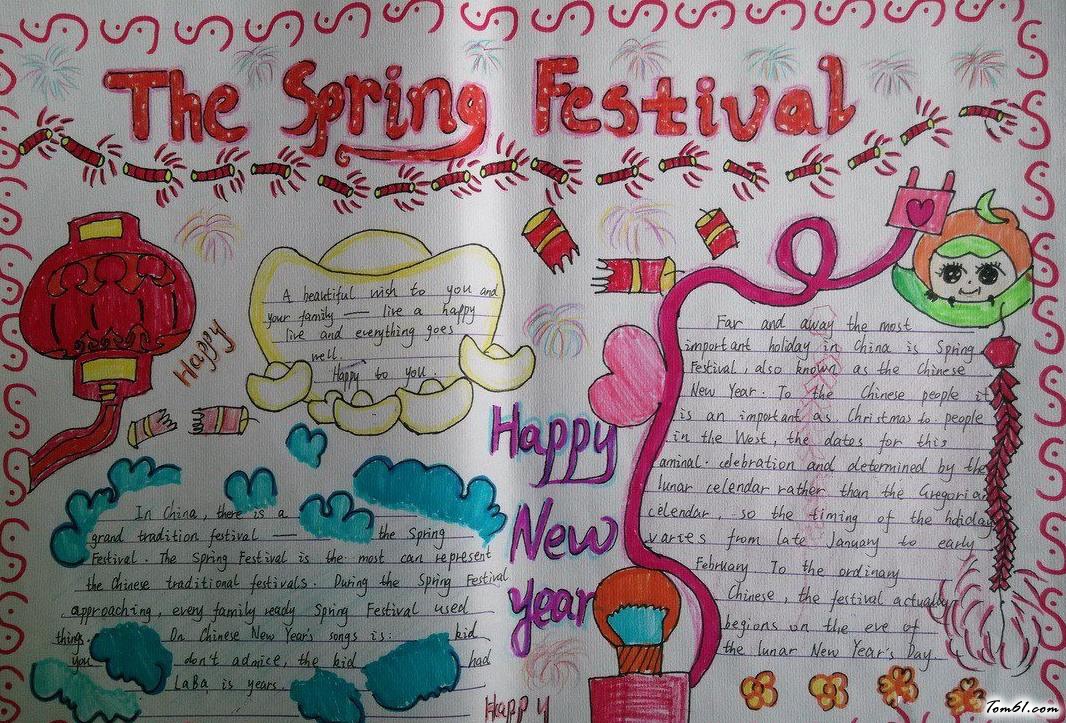 The Spring Festival
Happy
A beautiful wish to you and
your family — live a happy
live and everything goes
well.
Happy to you.
Happy
New
year
In China, there is a
grand tradition festival — the Spring
Festival. The Spring Festival is the most can represent
the Chinese traditional festivals. During the Spring Festival
approaching, every family ready Spring Festival used
things. On Chinese New Year's songs is: kid
you don't admice, the kid had
LaBa is years.
Happy
Far and away the most
important holiday in China is Spring
Festival, also known as the Chinese
New Year. To the Chinese people it
is an important as Christmas to people
in the West, the dates for this
aminal. celebration and determined by the
lunar celendar rather than the Gregorian
celendar, so the timing of the hdioday
varies from late January to early
February To the ordinary
Chinese, the festival actually
begions on the eve of
the lunar New Year's Day
Tom61.com